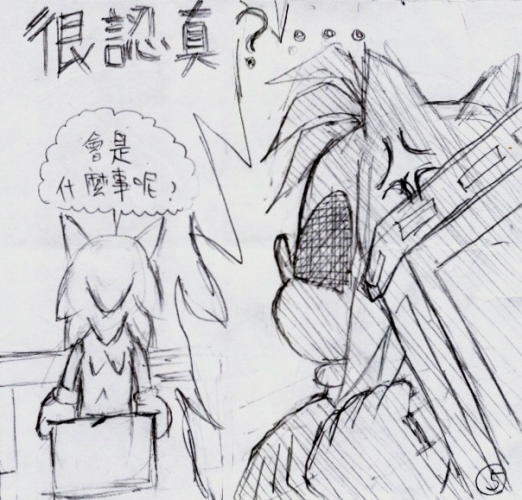 很認真?....
會是
什麼事呢?
5